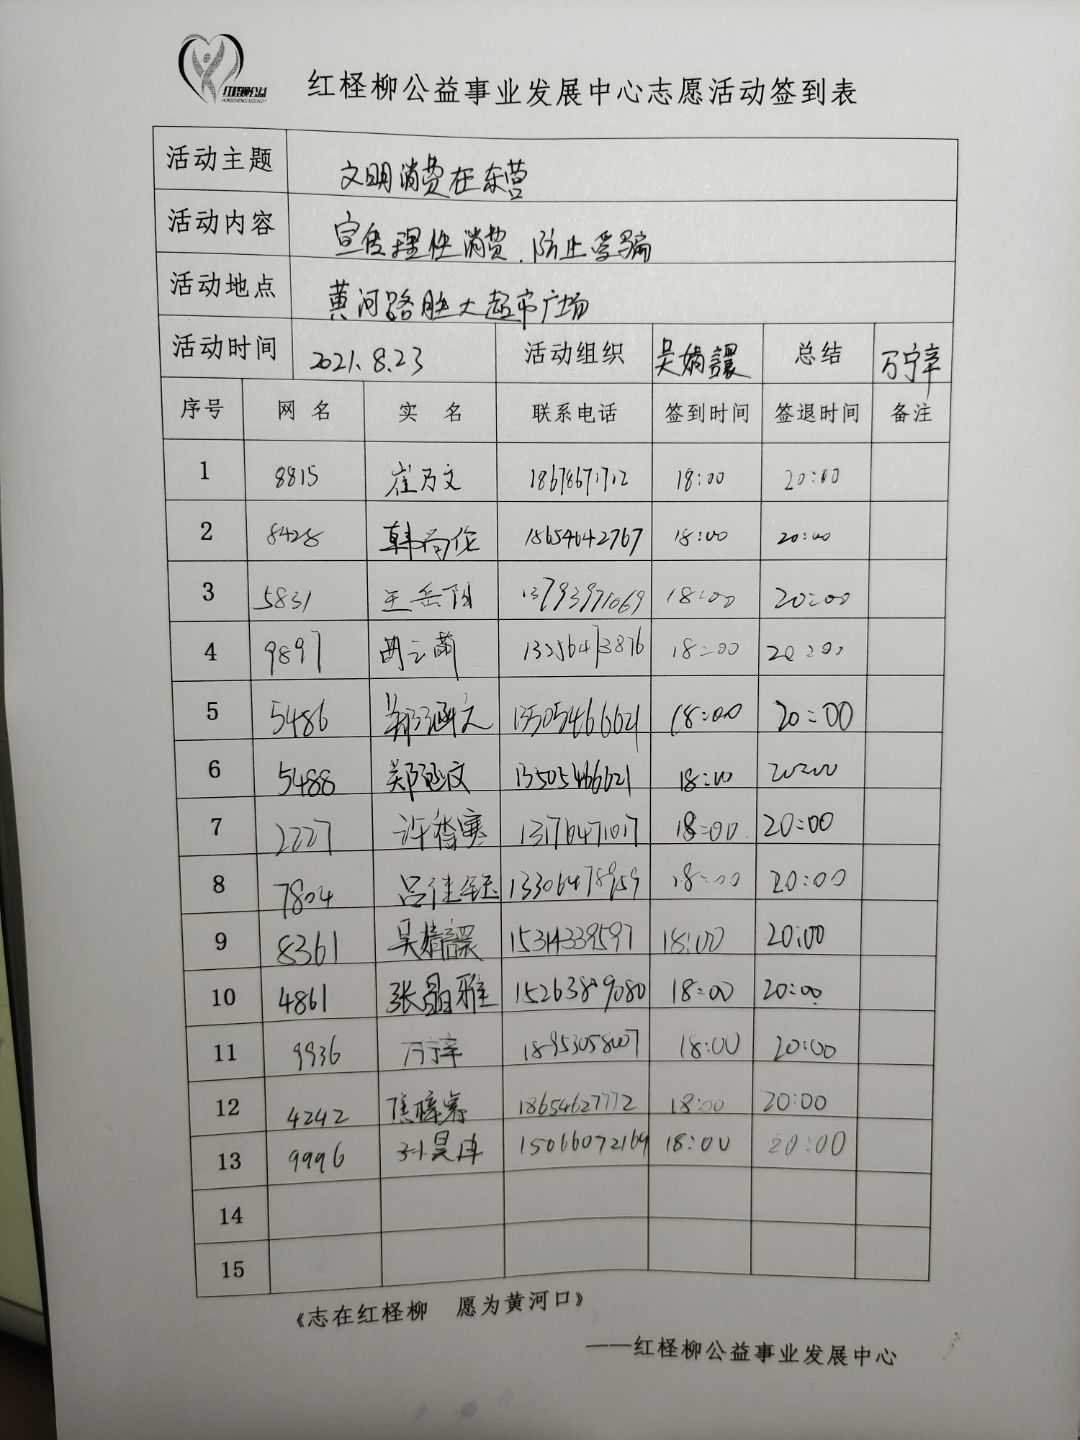 红柽柳公益
红柽柳公益事业发展中心志愿活动签到表
活动主题 文明消费在东营
活动内容 宣传理性消费.防止受骗
活动地点 黄河路胜大超市广场
活动时间 2021.8.23 活动组织 吴婧譞 总结 万宁宰
序号 网名 实名 联系电话 签到时间 签退时间 备注
1 8815 崔乃文 18:00 20:00
2 8428 15654642767 18:00 20:00
3 5831 王岳阳 13793971069 18:00 20:00
4 9897 13256473876 18:00 20:00
5 5486 郑涵文 13505466621 18:00 20:00
6 5488 郑涵文 13505466621 18:00 20:00
7 2227 13176471017 18:00 20:00
8 7804 吕佳钰 13306478959 18:00 20:00
9 8361 吴婧譞 15314339597 18:00 20:00
10 4861 张晶雅 15263899080 18:00 20:00
11 9936 18953058007 18:00 20:00
12 4242 18654627772 18:00 20:00
13 9996 15066072169 18:00 20:00
14
15
《志在红柽柳 愿为黄河口》
——红柽柳公益事业发展中心